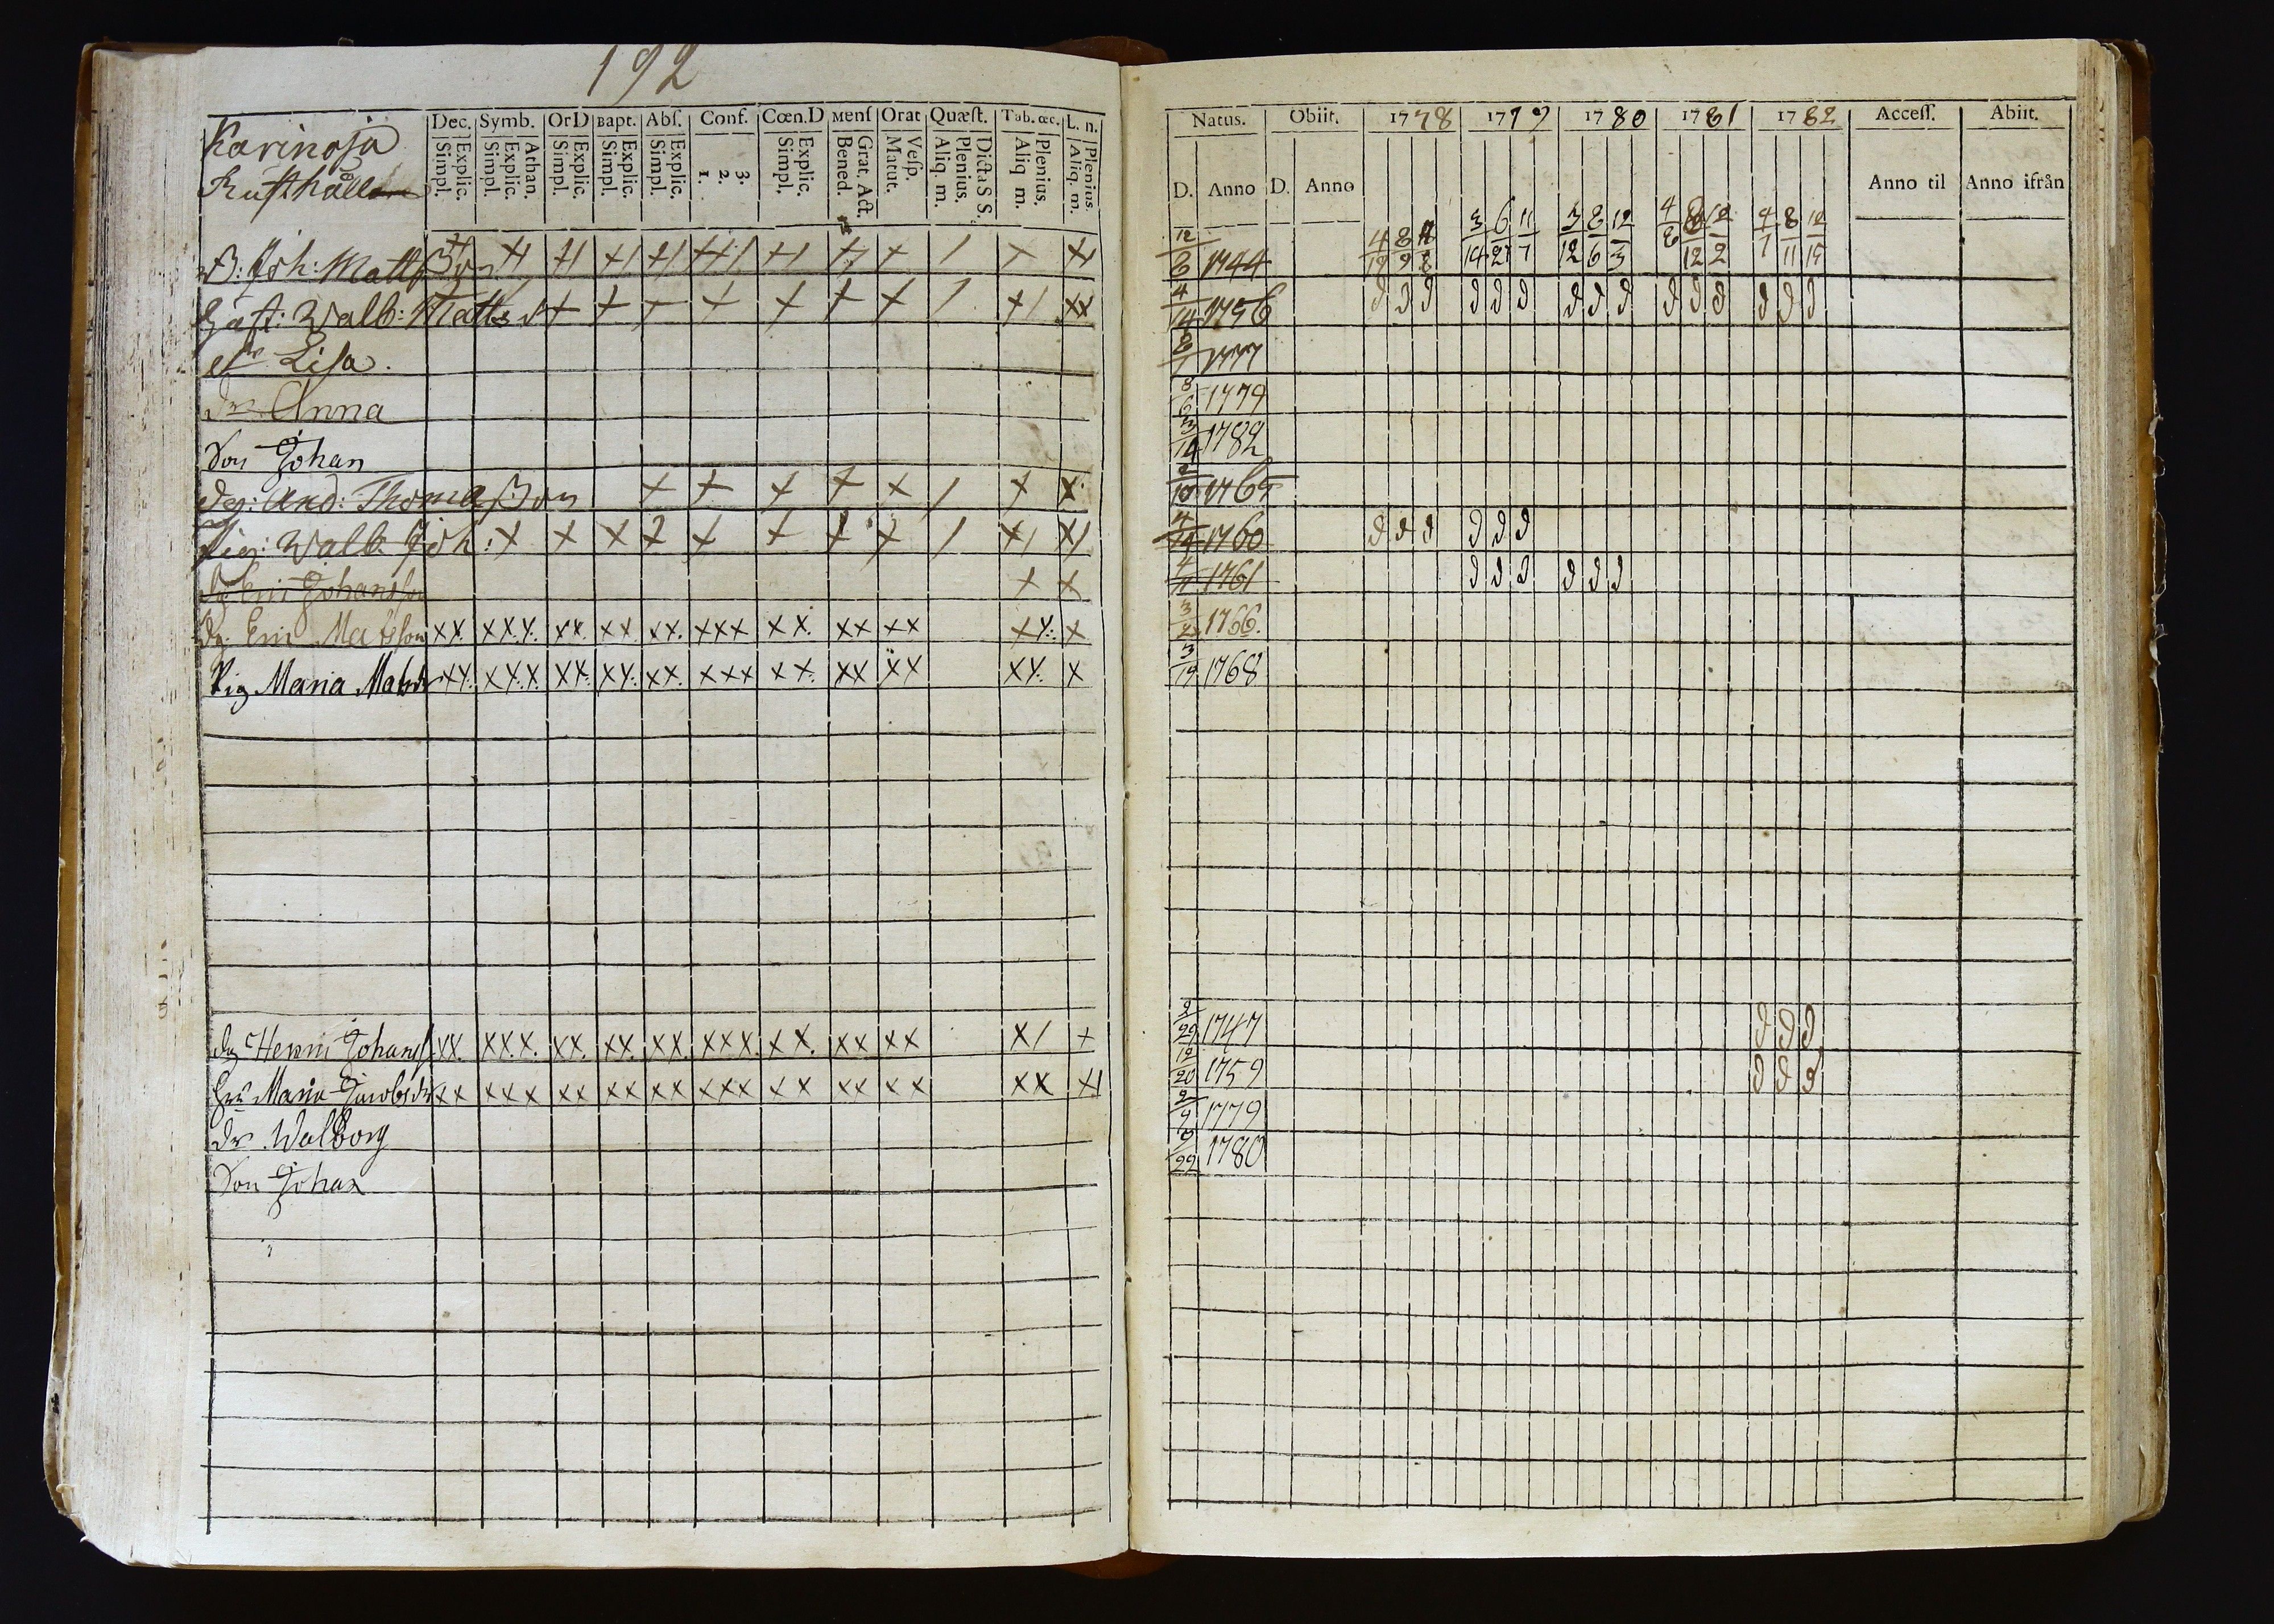 192
Karinoja
Rusthåll
Dec. Symb. OrD Bapt. Abſ. Conf. Cœn.D Menſ Orat Quæſt. Tab. œc. L. n.
Explic. Simpl.
Athan. Explic. Simpl.
Explic. Simpl.
Explic. Simpl.
Explic. Simpl.
3. 2. 1.
Explic. Simpl.
Grat. Act. Bened.
Veſp. Matut.
Dicta S S. Plenius. Aliq. m.
Plenius. Aliq m.
Plenius. Aliq. m.
B: Joh: Mattsson
Hust: Walb: Matts dr
dr Lisa.
dr Anna
Son Johan
drg: And: Thomasson
Pig: Walb. Joh:
dg Eric Johansson
dg. Eric Matsson XX. XXX. XX. XX. XX. XXX XX. XX XX XX. X
Pig Maria Matsdr XX. XXX. XX. XX. XX. XXX XX. XX XX XX. X
dg Henric Johanss XX. XXX. XX. XX. XX. XXX. XX. XX XX X/ +
Hru Maria Jacobsdr XX XXX XX XX XX XXX XX XX XX XX X/
dr. Walborg
Son Johan
Natus. Obiit. 1778 1779 1780 1781 1782 Acceſſ. Abiit.
D. Anno D. Anno Anno til Anno ifrån
4/19 8/9 3/14 6/21 11/7 3/12 8/6 12/3 4/8 4/7 8/11
12/6 1744
4/14 1756 d d d d d d d d d d d d d d d
8/1 1777
8/6 1779
3/14 1782
2/10 1765
4/19 1760 d d d d d d
4/11 1761 d d d d d d
3/2 1766.
3/19 1768
2/29 1747 d d d
12/20 1759 d d d
2/9 1779
9/22 1780